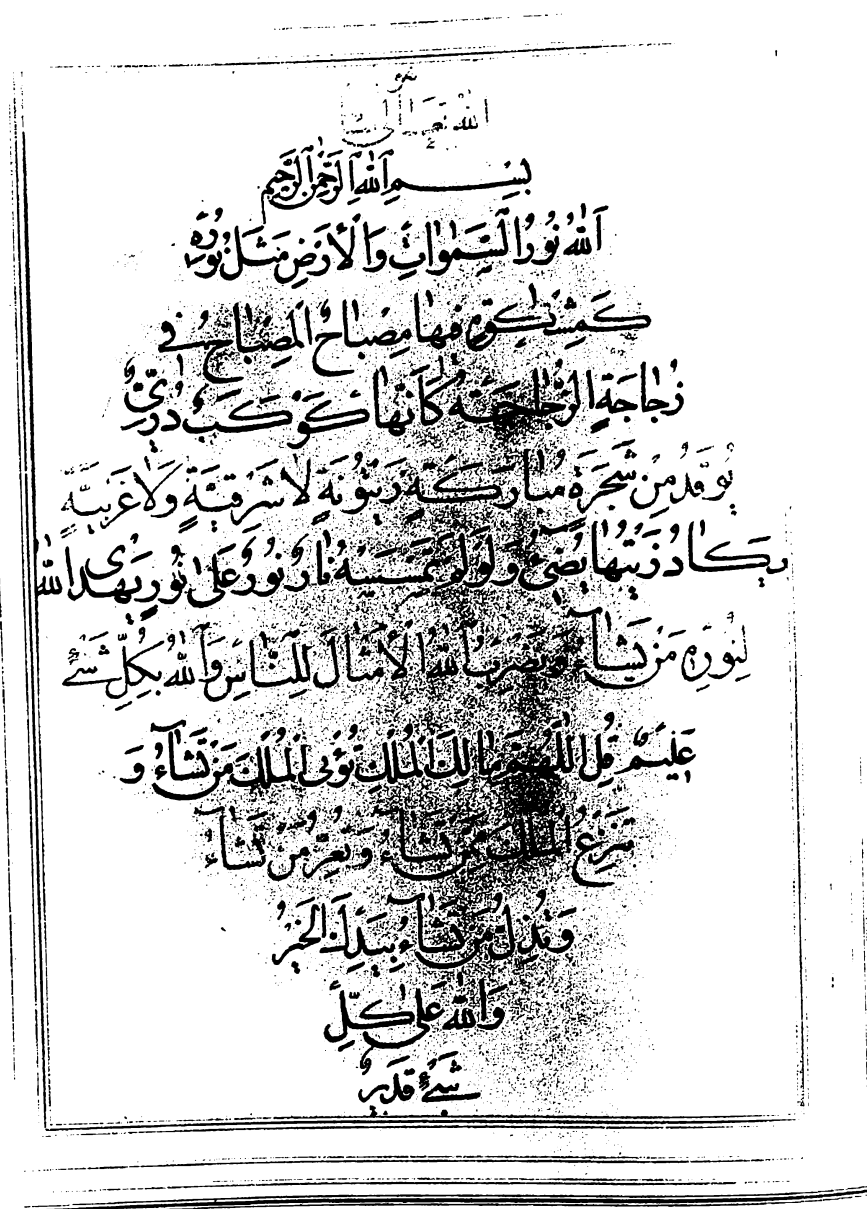 الله تعالى
بِسْمِ اللّٰهِ الرَّحْمٰنِ الرَّحِيمِ
اَللّٰهُ نُورُ السَّمٰوَاتِ وَالْاَرْضِ مَثَلُ نُورِهِ
كَمِشْكٰوةٍ فِيهَا مِصْبَاحٌ الْمِصْبَاحُ فِي
زُجَاجَةٍ الزُّجَاجَةُ كَاَنَّهَا كَوْكَبٌ دُرِّيٌّ
يُوقَدُ مِنْ شَجَرَةٍ مُبَارَكَةٍ زَيْتُونَةٍ لَا شَرْقِيَّةٍ وَلَا غَرْبِيَّةٍ
يَكَادُ زَيْتُهَا يُضِيءُ وَلَوْ لَمْ تَمْسَسْهُ نَارٌ نُورٌ عَلٰى نُورٍ يَهْدِى اللّٰهُ
لِنُورِهِ مَنْ يَشَآءُ وَيَضْرِبُ اللّٰهُ الْاَمْثَالَ لِلنَّاسِ وَاللّٰهُ بِكُلِّ شَيْءٍ
عَلِيمٌ قُلِ اللّٰهُمَّ مَالِكَ الْمُلْكِ تُؤْتِى الْمُلْكَ مَنْ تَشَآءُ وَ
تَنْزِعُ الْمُلْكَ مِمَّنْ تَشَآءُ وَتُعِزُّ مَنْ تَشَآءُ
وَتُذِلُّ مَنْ تَشَآءُ بِيَدِكَ الْخَيْرُ
وَاللّٰهُ عَلٰى كُلِّ
شَيْءٍ قَدِيرٌ